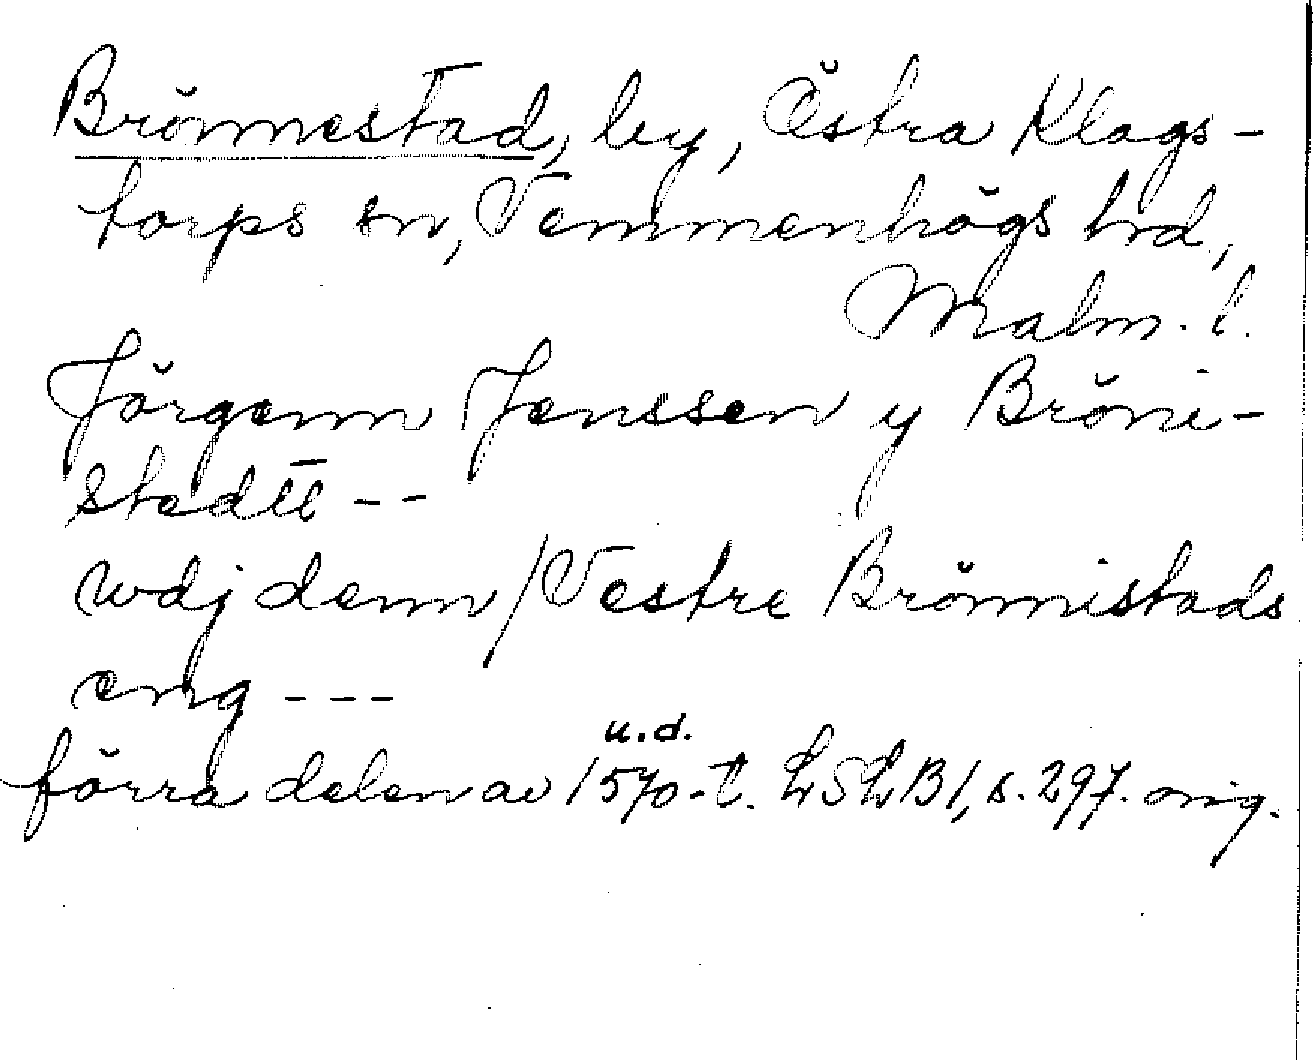 Brönnestad, by, Östra Klags-
torps sn, Vemmenhögs hrd,
Malm. l.
Jörgenn Jenssen y Bröni-
stedtt --
wdj denn/Vestre Brönnistads
eng ---
u.d.
förra delen av 1570-t. LSLB1, s. 297. orig.